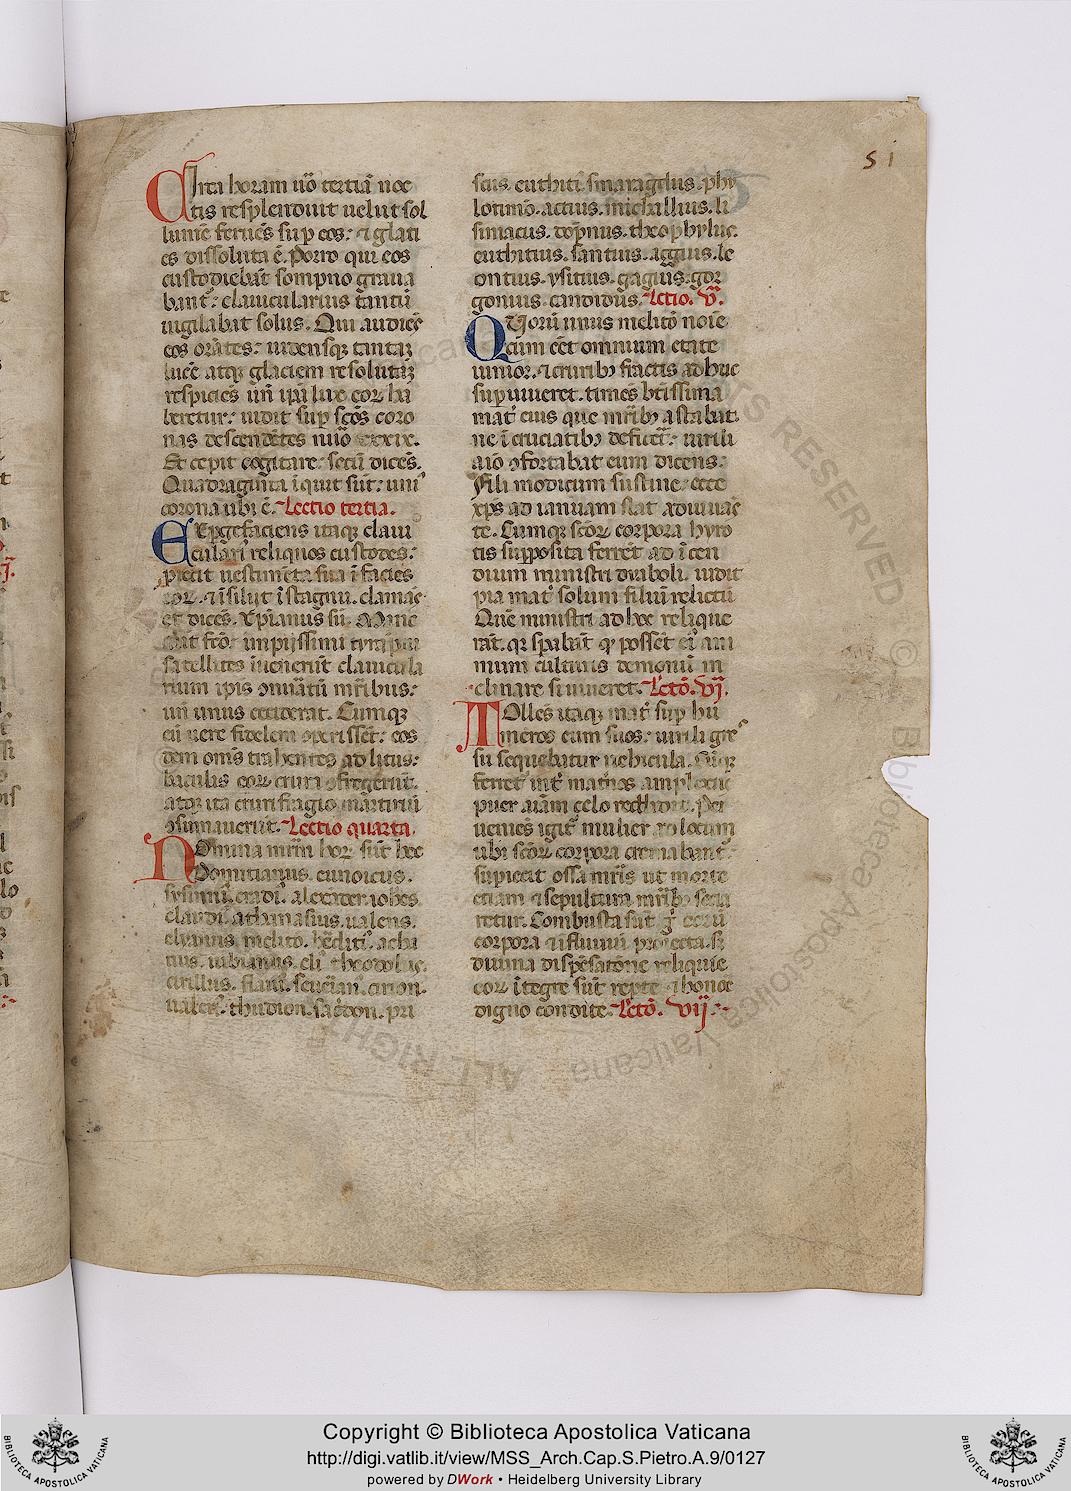 51
Circa horam uō tertiā noc
tis resplenduit uelut sol
lumē feruēs sup eos: ⁊ glaci
es dissoluta ē. Porro qui eos
custodiebāt sompno graua
bantˀ: clauicularius tantū
uigilabat solus. Qui audiēs
eos orātes: uidensqꝫ tantaꝫ
lucē atqꝫ glaciem resolutaꝫ
respiciēs uñ ipī lux eoꝝ ha
beretur: uidit sup scōs coro
nas descendētes nuō xxxix.
Et cepit cogitare: secū dicēs.
Quadraginta īquit sūt: uniˀ
corona ubi ē. Lectio tertia.
EXpgefaciens itaqꝫ claui
culari reliquos custodes:
piecit uestimēta sua ī faciēs
eoꝝ. ⁊ īsiluit ī stagnū. clamās
et dicēs. Xp̄ianus sū. Mane
aūt fcō impiissimi tyrāpni
satellites īuenerūt clauicula
rium ip̄is ↄnūatū mr̄ibus:
uñ unus ceciderat. Cumqꝫ
eū uere fidelem ↄperissēt: eos
dem om̄s trahentes ad litus:
baculis eoꝝ crura ↄfregerūt.
atqꝫ ita crurifragio martiriū
ↄsūmauerūt. Lectio quarta.
NOmina mr̄m hoꝝ sūt hec
Domitianus. eunoicus.
sysiniˀ. eradiˀ. alexāder. ioh̄es.
claudiˀ. athanasius. ualens.
elyanus. melito. hēditiˀ. acha
tius. uibianus. eliˀ. theodolus.
cirillus. flauiˀ. seueriānˀ. cirion.
ualeriˀ. thudion. sacdon. pri
scus. euthiciˀ. smaragdus. phy
lotimō. actius. michallius. li
simacus. dōpnus. theophylus.
euthitius. santius. aggius. le
ontius. ysitius. gagius. gor
gonius. candidus. Lectio. v̄.
QUorū unus melito noīe
cum eēt omnium etate
iunior. ⁊ cruribꝫ fractis ad huc
sup uiueret. timēs btīssima
matˀ eius que mr̄ibꝫ astabat.
ne ī cruciatibꝫ deficetˀ: uirili
aīo ↄfortabat eum dicens:
Fili modicum sustine: ecce
xp̄s ad ianuam stat adiuuās
te. Cumqꝫ scōꝝ corpora hyro
tis supposita ferrēt ad īcen
dium ministri diaboli. uidit
pia matˀ solum filiū relictū
Quē ministri ad hoc relique
rāt. qꝛ spabāt qꝫ possēt eiˀ ani
mum cultuuis demoniū in
clinare si uiueret. Lectō. vj.
TOllēs itaqꝫ matˀ sup hu
meros eum suos: uirili gres
su sequebatur uehicula. Cūqꝫ
ferretˀ intˀ maternos amplexus
puer aīam celo reddidit. Per
ueniēs igitˀ mulier ad locum
ubi scōꝝ corpora cremabantˀ:
supiecit ossa mr̄is ut morte
etiam ⁊ sepultura mr̄ibꝫ socia
retur. Combusta sūt gˀ eorū
corpora ⁊ ī fluuium proiecta. sꝫ
diuina dispēsatione reliquie
eoꝝ ītegre sūt repte ⁊ honoē
digno condite. Lectō. vij.
Copyright © Biblioteca Apostolica Vaticana
http://digi.vatlib.it/view/MSS_Arch.Cap.S.Pietro.A.9/0127
powered by DWork • Heidelberg University Library
BIBLIOTECA APOSTOLICA VATICANA
BIBLIOTECA APOSTOLICA VATICANA